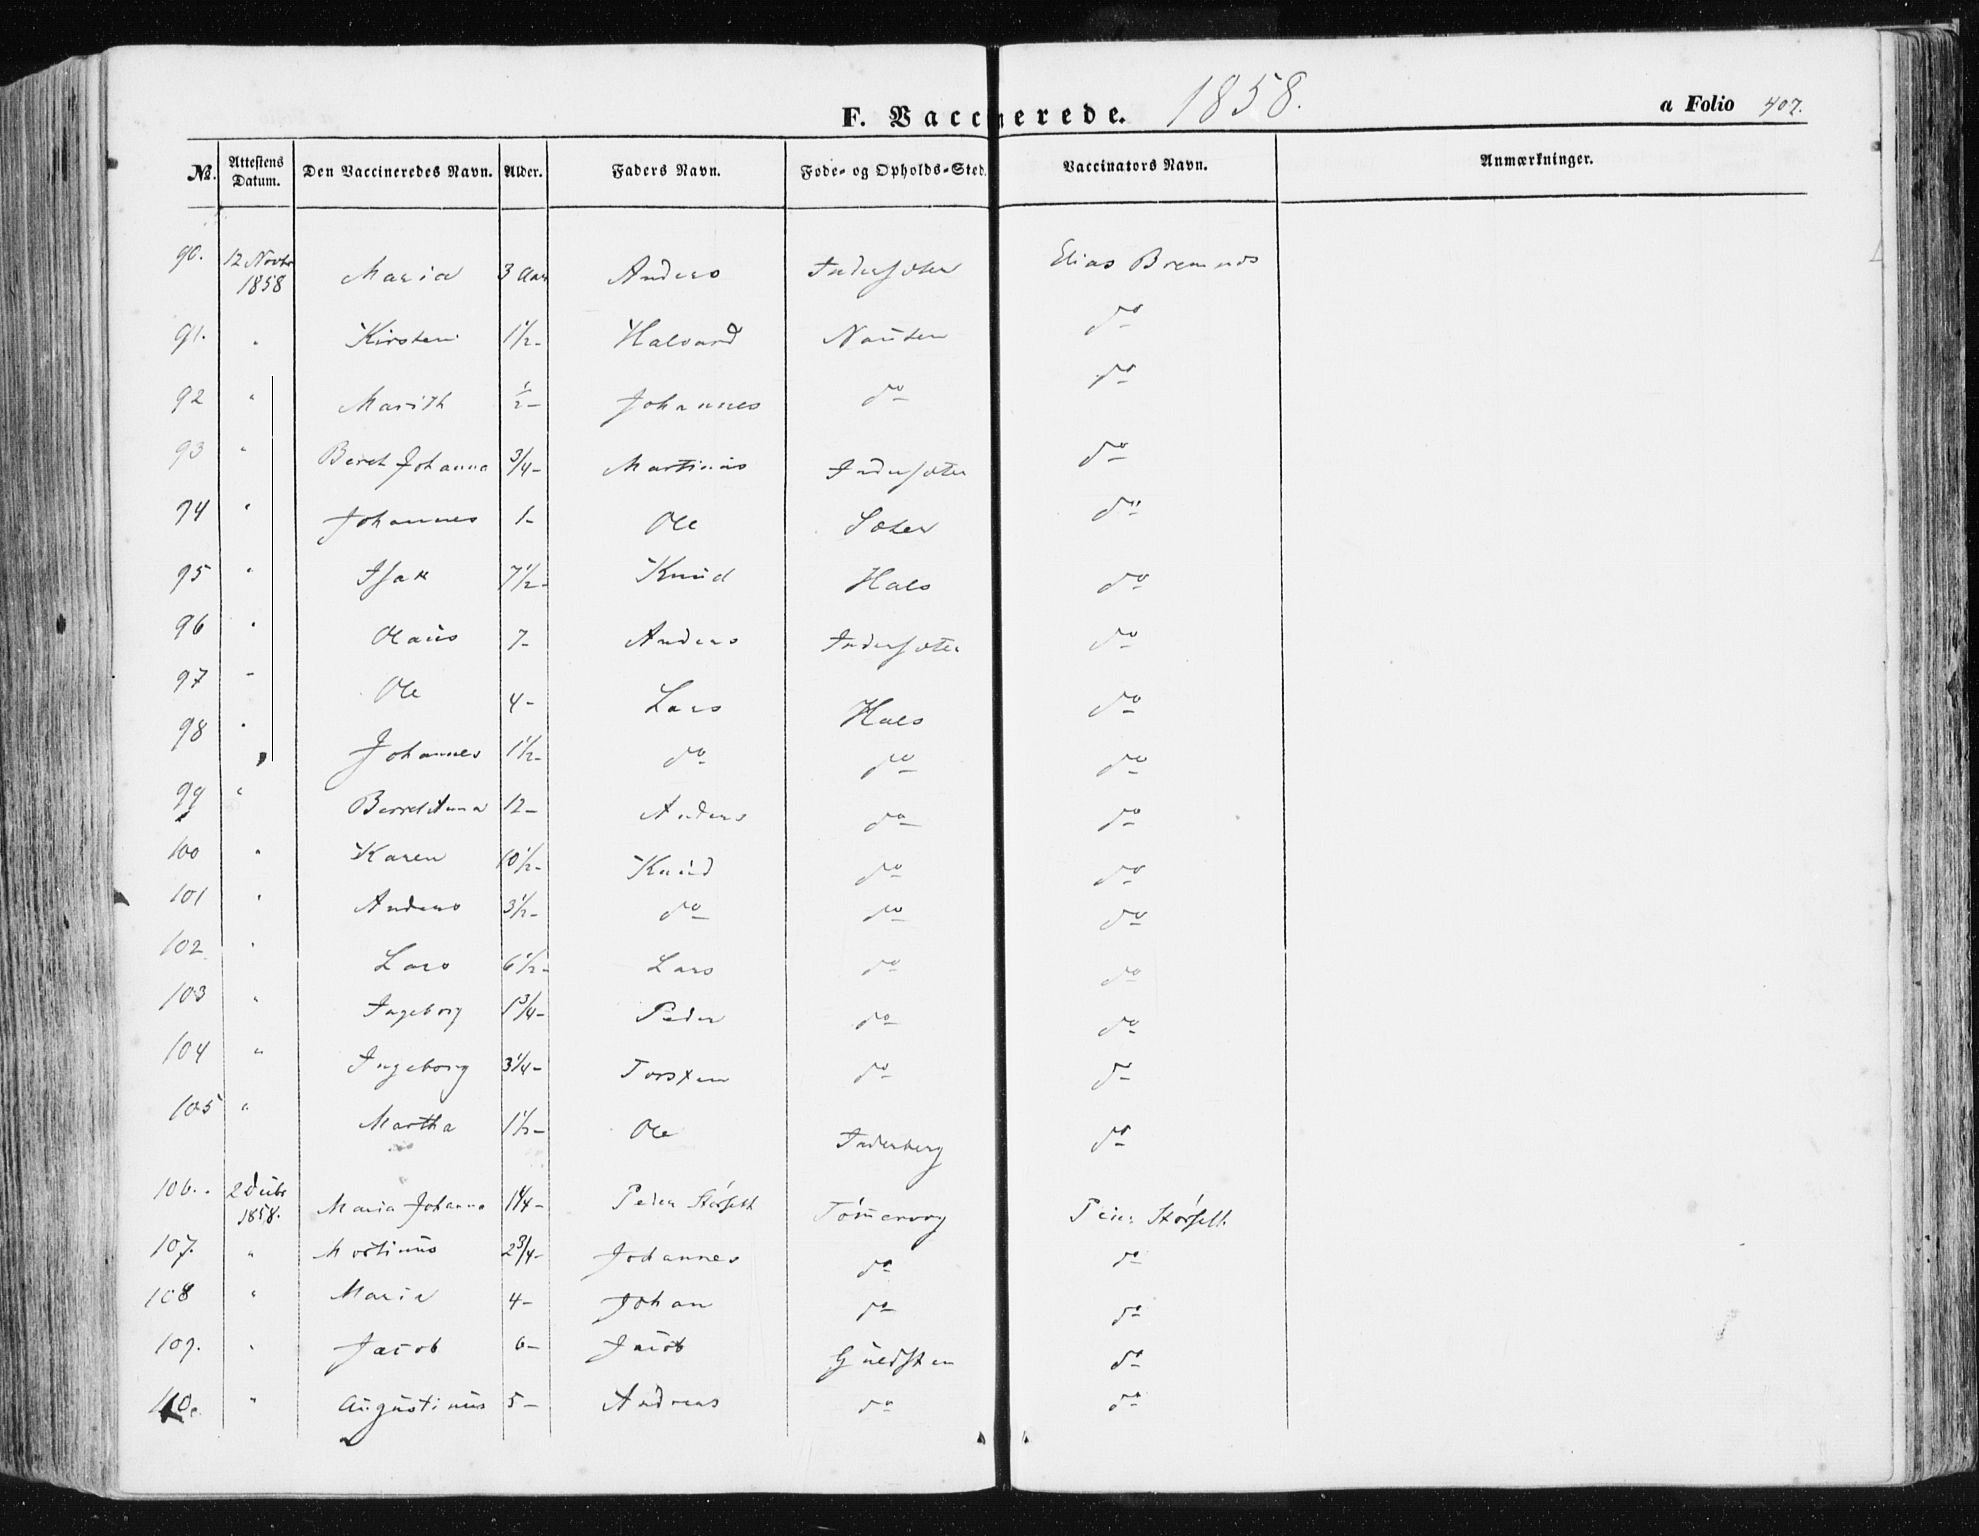 F. Vaccinerede. 1858. a Folio 407.
No. Attestens Datum. Den Vaccineredes Navn. Alder. Faders Navn. Føde- og Opholds-Sted. Vaccinators Navn. Anmærkninger.
90. 12 Novbr 1858 Maria 3 Aar Anders Indersæter Elias Bremnes
91. " Kirsten 1½- Halvard Nausten do
92 " Marith ½- Johannes do do
93 " Beret Johanna ¾- Martinus Indersæter do
94 " Johannes 1- Ole Sæter do
95 " Isak 7½- Knud Hals do
96 " Olaus 7- Anders Indersæter do
97 " Ole 4- Lars Hals do
98 " Johannes 1½- do do do
99 " Berret Anna 12- Anders do do
100 " Karen 10½- Knud do do
101 " Anders 3½- do do do
102 " Lars 6½- Lars do do
103 " Ingeborg 1¾- Peder do do
104 " Ingeborg 3¼- Torsten do do
105 " Martha 1½- Ole Inderberg do
106. 2 Decbr 1858. Maria Johanna 1¼- Peder Størseth Tømmervog Peder Størseth
107. " Mortinus 2¾- Johannes do do
108 " Maria 4- Johan do do
109. " Jacob 6- Jacob Guldsten do
110. " Augustinus 5- Andreas do do